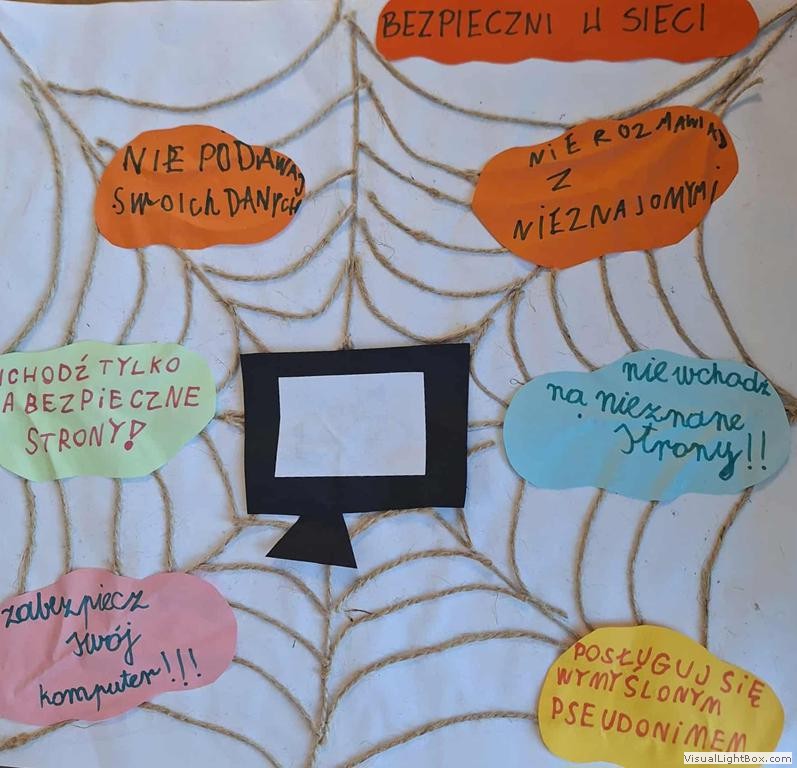 BEZPIECZNI W SIECI
NIE PODAWAJ
SWOICH DANYCH
NIE ROZMAWIAJ
Z
NIEZNAJOMYMI
WCHODŹ TYLKO
NA BEZPIECZNE
STRONY!
nie wchodź
na nieznane
strony!!
zabezpiecz
swój
komputer!!!
POSŁUGUJ SIĘ
WYMYŚLONYM
PSEUDONIMEM
VisualLightBox.com